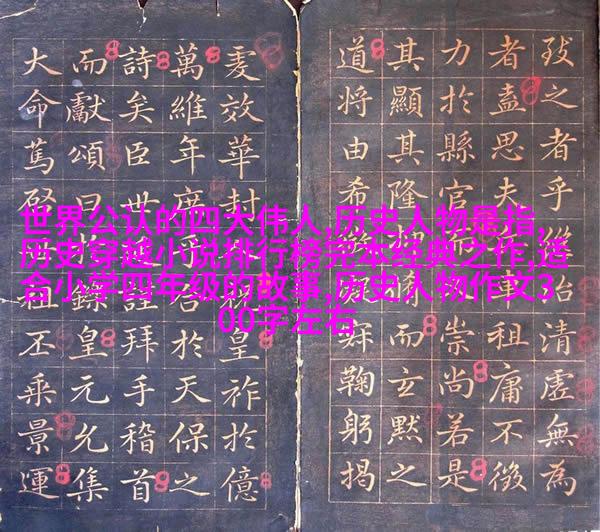 致之者乎清虛無為
者盍思夫重祖庸不徵
力於縣官崇尚若是
其顯其隆而玄默之
道將由希鞠躬揭
虔效華封皇祚於億
萬維年於天保之
詩矣臣世謹拜手稽首
而獻頌曰皇元允集
大命篤啓祖丕乘景運
世界公认的四大伟人,历史人物是指,
历史穿越小说排行榜完本经典之作,适
合小学四年级的故事,历史人物作文3
00字左右